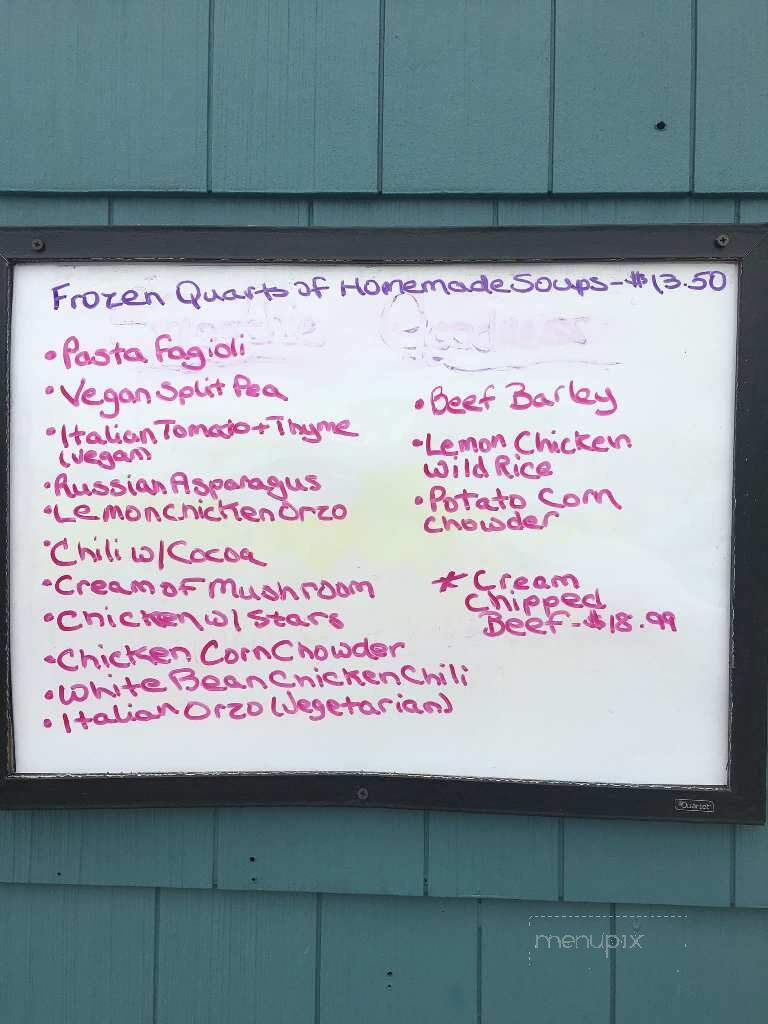 Frozen Quarts of Homemade Soups - $13.50
• Pasta Fagioli
• Vegan Split Pea
• Italian Tomato + Thyme
(vegan)
• Russian Asparagus
• Lemon Chicken Orzo
• Chili w/ Cocoa
• Cream of Mushroom
• Chicken w/ Stars
• Chicken Corn Chowder
• White Bean Chicken Chili
• Italian Orzo (Vegetarian)
• Beef Barley
• Lemon Chicken
Wild Rice
• Potato Corn
Chowder
* Cream
Chipped
Beef - $18.99
Quartet
menupix